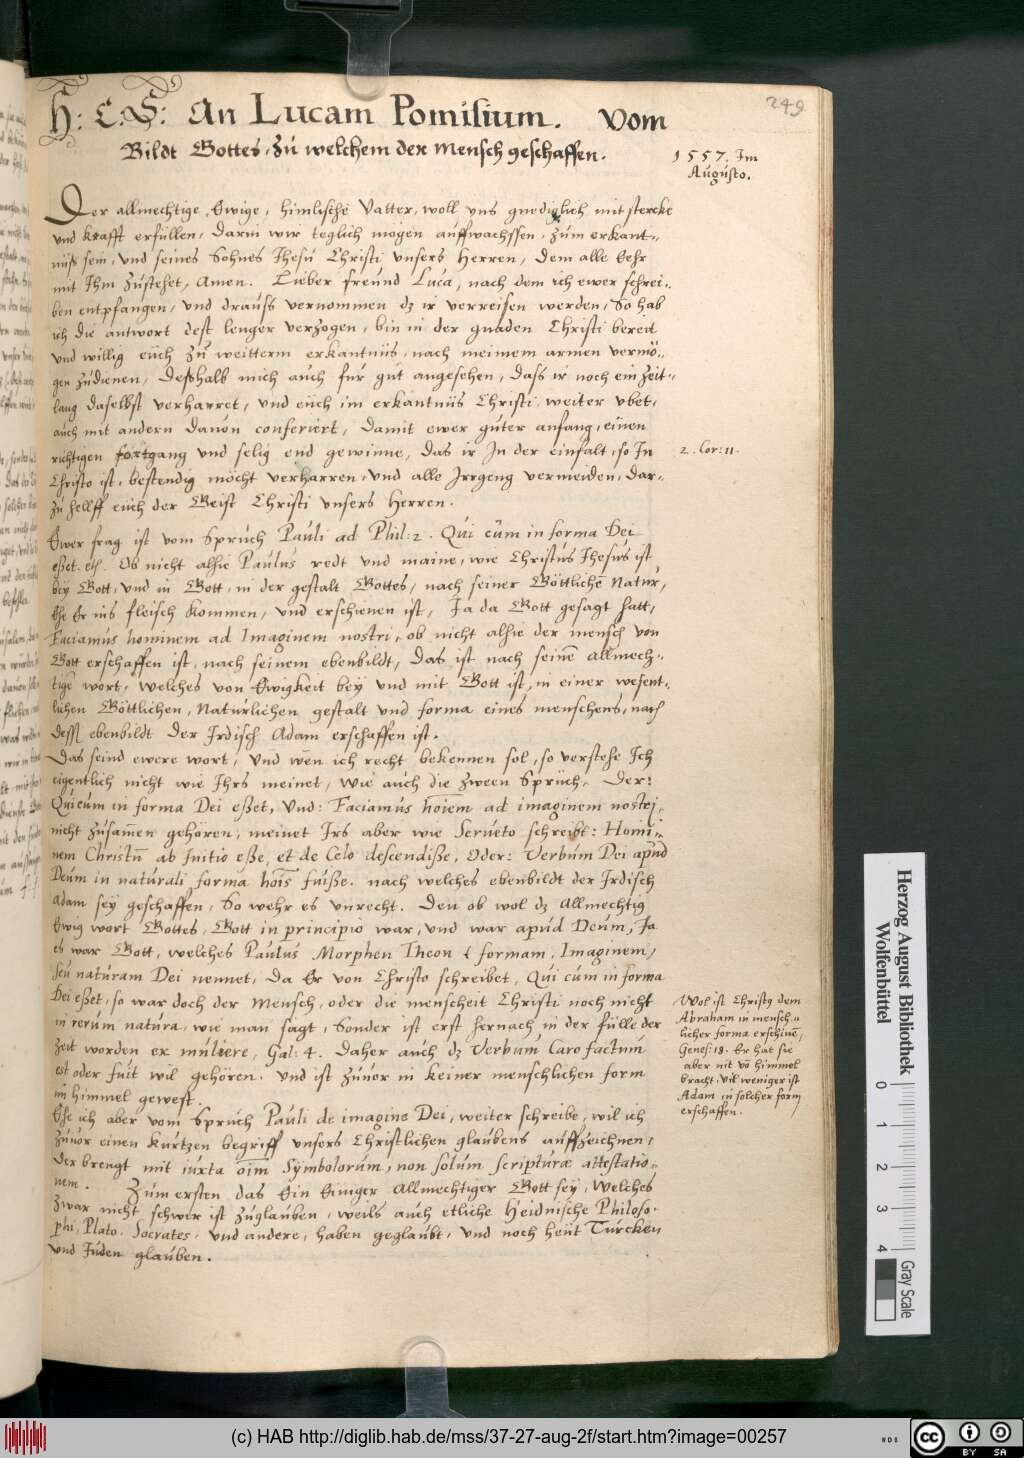 249.
H: C. S: An Lucam Pomisium. Vom
Bildt Gottes, zu welchem der Mensch geschaffen.
1557. Im
Augusto.
Der allmechtige, Ewige, himlische Vatter, woll uns gnediglich mit stercke
und krafft erfüllen, darin wir teglich mögen auffwachssen, zum erkant-
nüß sein, und seines Sohnes Jhesu Christi unsers Herren, dem alle Eehr
mit Ihm zustehet, Amen. Lieber freund Luca, nach dem ich ewer schrei-
ben entpfangen, und drauss vernommen dz ir verreisen werden, So hab
ich die antwort dest lenger verzogen, bin in der gnaden Christi bereit
und willig euch zu weitterm erkantnüs, nach meinem armen vermö-
gen zudienen, Deßhalb mich auch fur gut angesehen, dass ir noch ein zeit-
lang daselbst verharret, und euch im erkantnüs Christi, weiter ubet,
auch mit andern davon conferiert, damit ewer guter anfang, einen
richtigen fortgang und selig end gewinne, das ir In der einfalt, so In
2. Cor: 11.
Christo ist, bestendig möcht verharren, und alle Irrgeng vermeiden, Dar-
zu hellff euch der Geist Christi unsers Herren.
Ewer frag ist vom Spruch Pauli ad Phil: 2. Qui cum in forma Dei
eßet. etc. Ob nicht alhie Paulus redt und maine, wie Christus Jhesus ist
bey Gott, und in Gott, in der gestalt Gottes, nach seiner Göttliche Natur,
Ehe Er ins fleisch kommen, und erschienen ist, Ja da Gott gesagt hatt,
Faciamus hominem ad Imaginem nostri, ob nicht alhie der mensch von
Gott erschaffen ist, nach seinem ebenbildt, Das ist nach seine Allmech-
tige wort, welches von Ewigkeit bey und mit Gott ist, in einer wesent-
lichen Göttlichen, Naturlichen gestalt und forma eines menschens, nach
dess ebenbildt der Irdisch Adam erschaffen ist.
Das seind ewere wort, Und wen ich recht bekennen sol, so verstehe Ich
eigentlich nicht wie Ihrs meinet, Wie auch die zween Sprüch, Der:
Qui cum in forma Dei eßet, Und: Faciamus hoiem ad imaginem nostri,
nicht zusamen gehören, meinet Irs aber wie Serveto schreibt: Homi-
nem Christu ab Initio eße, et de Celo descendiße, Oder: Verbum Dei apud
Deum in naturali forma hois fuiße. nach welches ebenbildt der Irdisch
Adam sey geschaffen, So wehr es unrecht. Den ob wol dz Allmechtig
Ewig wort Gottes, Gott in principio war, und war apud Deum, Ja
es war Gott, welches Paulus Morphen Theou formam, Imaginem,
seu naturam Dei nennet, Da Er von Christo schreibet, Qui cum in forma
Dei eßet, so war doch der Mensch, oder die menscheit Christi noch nicht
in rerum natura, wie man sagt, Sonder ist erst hernach in der fülle der
zeit worden ex muliere, Gal: 4. Daher auch dz Verbum Caro factum
est oder fuit wil gehören. und ist zuvor in keiner menschlichen form
im himmel gewest.
Wol ist Christ9 dem
Abraham in mensch-
licher forma erschine,
Genes: 18. Er hat sie
aber nit vo himmel
bracht, vil weniger ist
Adam in solcher form
erschaffen.
Ehe ich aber vom Spruch Pauli de imagine Dei, weiter schreibe, wil ich
zuvor einen kurtzen begriff unsers Christlichen glaubens auffzeichnen,
Der brengt mit iuxta oim Symbolorum, non solum scripturæ attestatio-
nem. Zum ersten das Ein Einiger Allmechtiger Gott sey, Welches
zwar nicht schwer ist zuglauben, weils auch etliche Heidnische Philoso-
phi, Plato, Socrates, und andere, haben geglaubt, und noch heut Turcken
und Juden glauben.
Herzog August Bibliothek
Wolfenbüttel
0 1 2 3 4
Gray Scale
(c) HAB http://diglib.hab.de/mss/37-27-aug-2f/start.htm?image=00257
WDB
cc BY SA